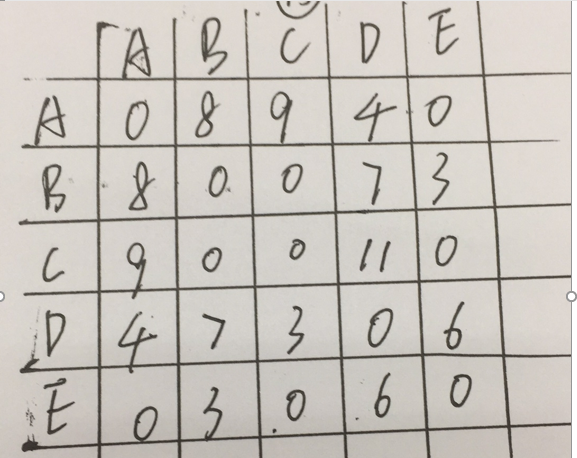 A B C D E
A 0 8 9 4 0
B 8 0 0 7 3
C 9 0 0 11 0
D 4 7 3 0 6
E 0 3 0 6 0